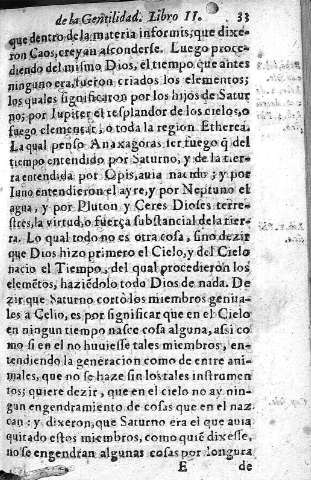 de la Gentilidad. Libro II. 33
que dentro de la materia informis, que dixe-
ron Caos, creyan asconderse. Luego proce-
diendo del mismo Dios, el tiempo que antes
ninguno era, fueron criados los elementos;
los quales significaron por los hijos de Satur
no; por Iupiter el resplandor de los cielos, o
fuego elemental, o toda la region Etherea.
La qual penso Anaxagoras ser fuego q̃ del
tiempo entendido por Saturno, y de la tier-
ra entendida por Opis, auia nacido; y por
Iuno entendieron el ayre, y por Neptuno el
agua, y por Pluton y Ceres Dioses terre-
stes, la virtud, o fuerça substancial de la tier-
ra. Lo qual todo no es otra cosa, sino dezir
que Dios hizo primero el Cielo, y del Cielo
nacio el Tiempo, del qual procedieron los
elemẽtos, haziẽdolo todo Dios de nada. De
zir que Saturno cortò los miembros genita-
les a Celio, es por significar que en el Cielo
en ningun tiempo nasce cosa alguna, assi co
mo si en el no huuiesse tales miembros, en-
tendiendo la generacion como de entre ani-
males, que no se haze sin los tales instrumen
tos; quiere dezir, que en el cielo no ay nin-
gun engendramiento de cosas que en el naz
can: y dixeron, que Saturno era el que auia
quitado estos miembros, como quiẽ dixesse,
no se engendran algunas cosas por longura
E de